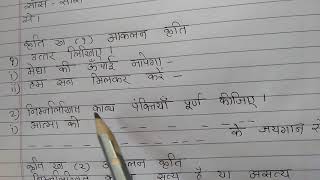 सास - सारा
ये।
कृति ख (१) आकलन कृति
१) उत्तर लिखिए।
i) मेघा की ऊँचाई नापेगा -
ii) हम सब मिलकर करें -
२) निम्नलिखित काव्य पंक्तियाँ पूर्ण कीजिए।
i) आत्मा को - - - - - - - - -
- - - - - - - - के जयगान से
कृति ख (२) आकलन कृति
निम्नलिखित सत्य है या असत्य